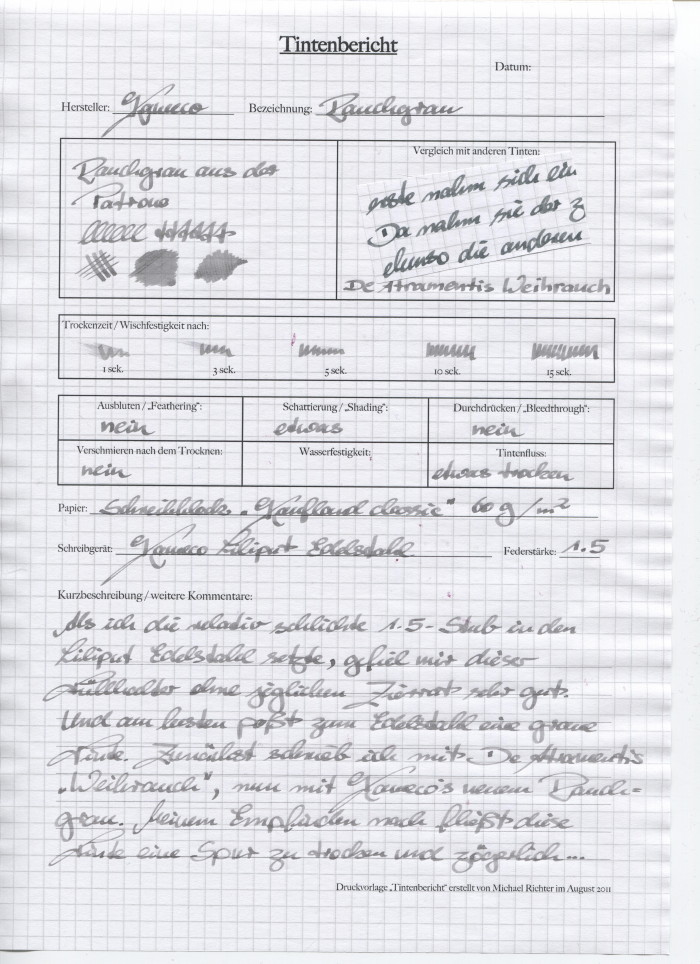 Tintenbericht
Datum:
Hersteller: Kaweco Bezeichnung: Rauchgrau
Rauchgrau aus der
Patrone
Vergleich mit anderen Tinten:
erste nahm sich ein
Da nahm sie der z
ebenso die anderen
De Atramentis Weihrauch
Trockenzeit / Wischfestigkeit nach:
1 sek. 3 sek. 5 sek. 10 sek. 15 sek.
Ausbluten / „Feathering": Schattierung / „Shading": Durchdrücken / „Bleedthrough":
nein etwas nein
Verschmieren nach dem Trocknen: Wasserfestigkeit: Tintenfluss:
nein etwas trocken
Papier: Schreibblock „Kaufland classic" 60 g/m²
Schreibgerät: Kaweco Liliput Edelstahl Federstärke: 1.5
Kurzbeschreibung / weitere Kommentare:
Als ich die relativ schlichte 1.5-Stub in den
Liliput Edelstahl setzte, gefiel mir dieser
Füllhalter ohne jeglichen Zierrat sehr gut.
Und am besten paßt zum Edelstahl eine graue
Tinte. Zunächst schrieb ich mit De Atramentis
„Weihrauch", nun mit Kaweco's neuem Rauch=
grau. Meinem Empfinden nach fließt diese
Tinte eine Spur zu trocken und zögerlich...
Druckvorlage „Tintenbericht" erstellt von Michael Richter im August 2011